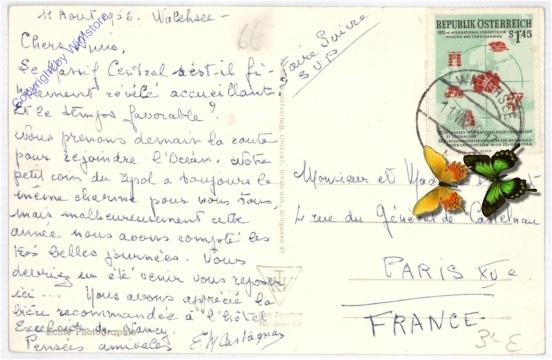 11 Aout 1956. Walchsee -
Chers Amis,
Le Massif Central s'est il fi-
nalement révélé accueillant
Et le temps favorable?
Nous prenons demain la route
pour rejoindre l'Océan. Notre
petit coin du Tyrol a toujours le
même charme pour nous tous
mais malheureusement cette
année nous avons compté les
très belles journées. Vous
devriez un été venir vous reposer
ici... Nous avons apprécié la
bière recommandée à l'hôtel
Excelsior de Nancy.
Pensées amicales
Echte Photographie
Copyright by Wimstore
66
Faire Suivre
S.V.P
REPUBLIK ÖSTERREICH
S 1·45
Monsieur et
4 rue du Général de Castelnau
PARIS XVe
FRANCE
3'- E